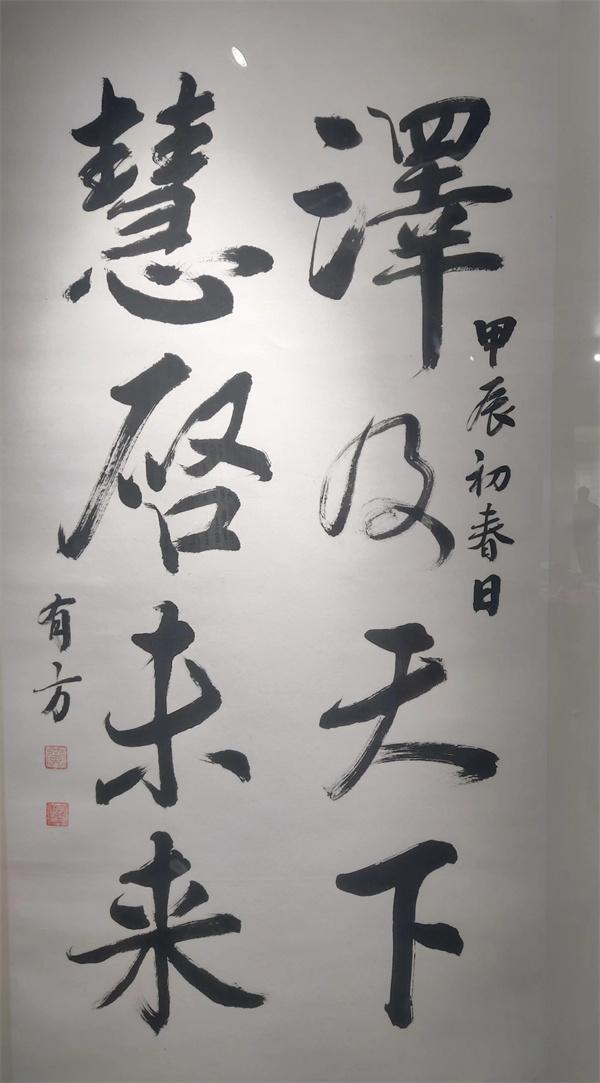 澤及天下
慧启未来
甲辰初春日
有方